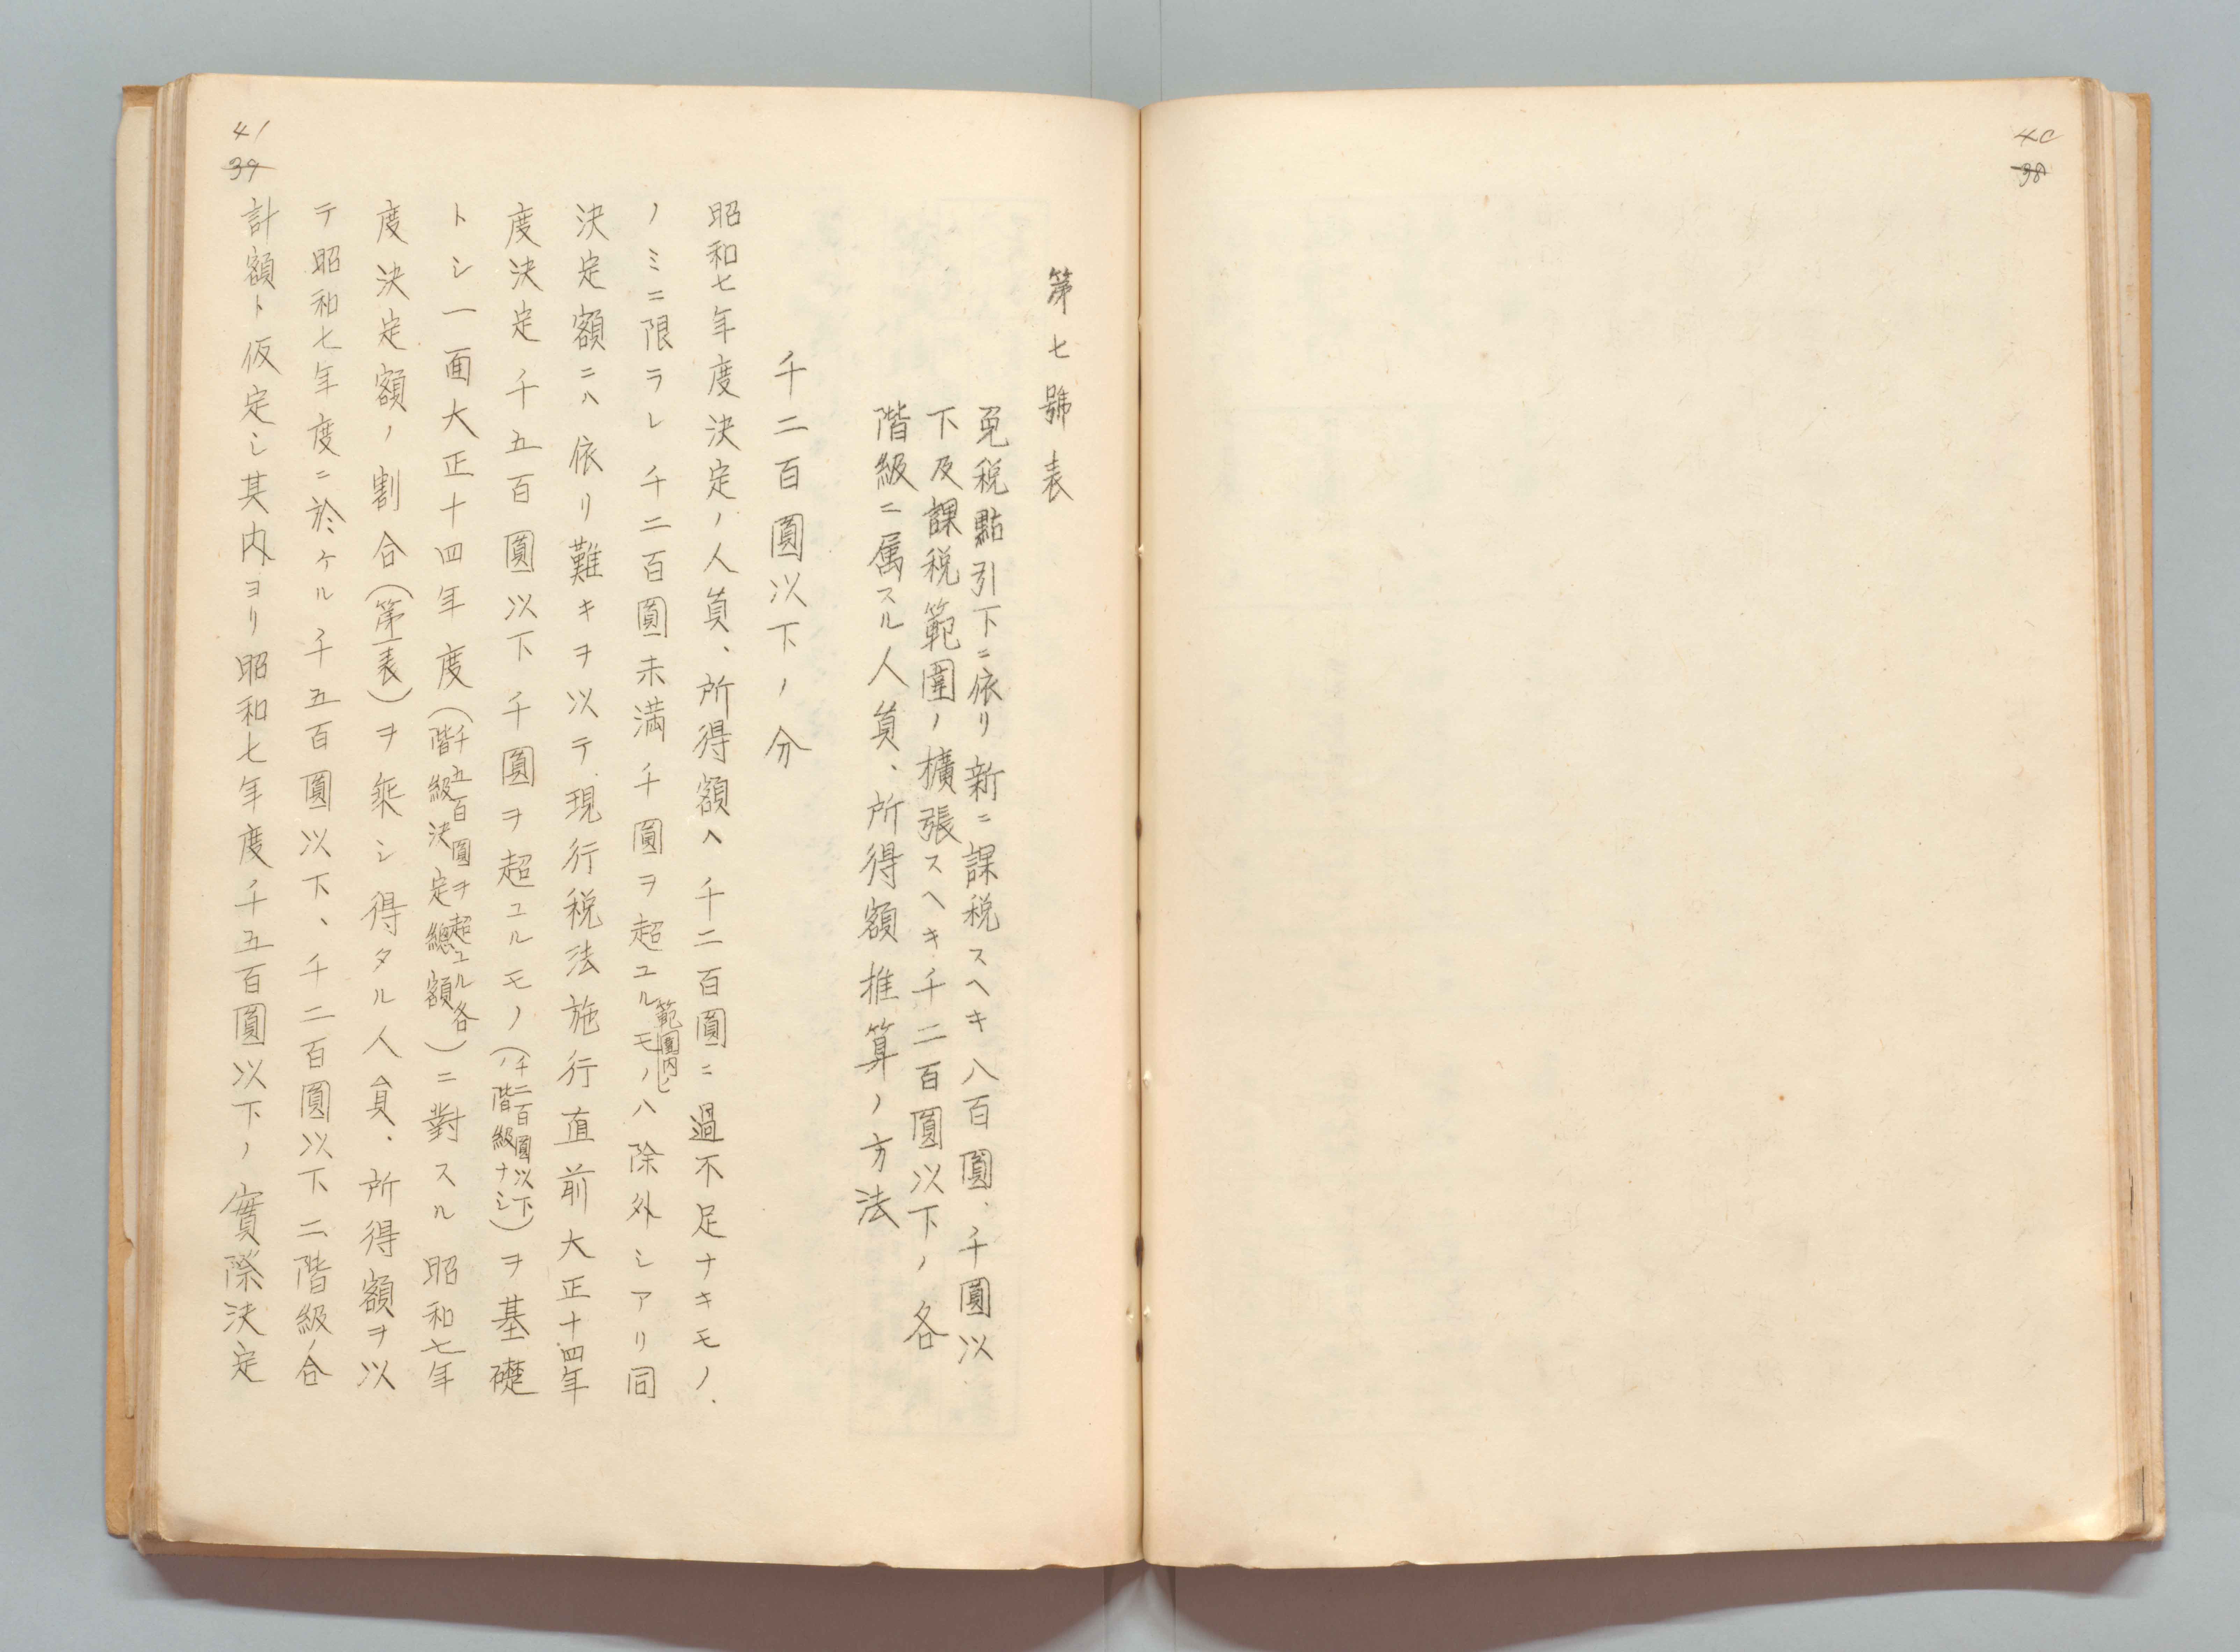 40
38
第七號表
免税點引下ニ依リ新ニ課税スヘキ八百圓、千圓以
下及課税範圍ノ擴張スヘキ千二百圓以下ノ各
階級ニ属スル人員、所得額推算ノ方法
千二百圓以下ノ分
昭和七年度決定ノ人員、所得額ヘ千二百圓ニ過不足ナキモノ
ノミニ限ラレ千二百圓未満千圓ヲ超ユル範圍内ノモノハ除外シアリ同
決定額ニハ依リ難キヲ以テ現行税法施行直前大正十四年
度決定千五百圓以下千圓ヲ超ユルモノ(千二百圓以下ノ階級ナシ)ヲ基礎
トシ一面大正十四年度(千五百圓ヲ超ユル各階級決定總額)ニ對スル昭和七年
度決定額ノ割合(第一表)ヲ乘シ得タル人員、所得額ヲ以
テ昭和七年度ニ於ケル千五百圓以下、千二百圓以下二階級ノ合
計額ト仮定シ其内ヨリ昭和七年度千五百圓以下ノ實際決定
41
39